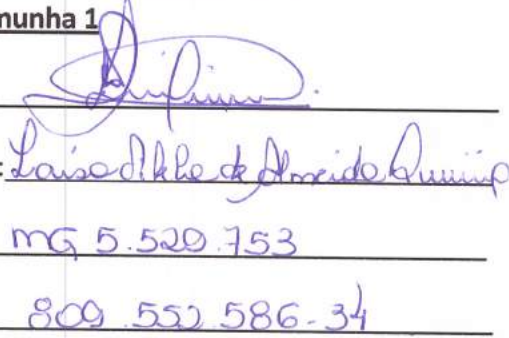 munha 1
: Laise de Almeida
MG 5.520.753
809.552.586-34